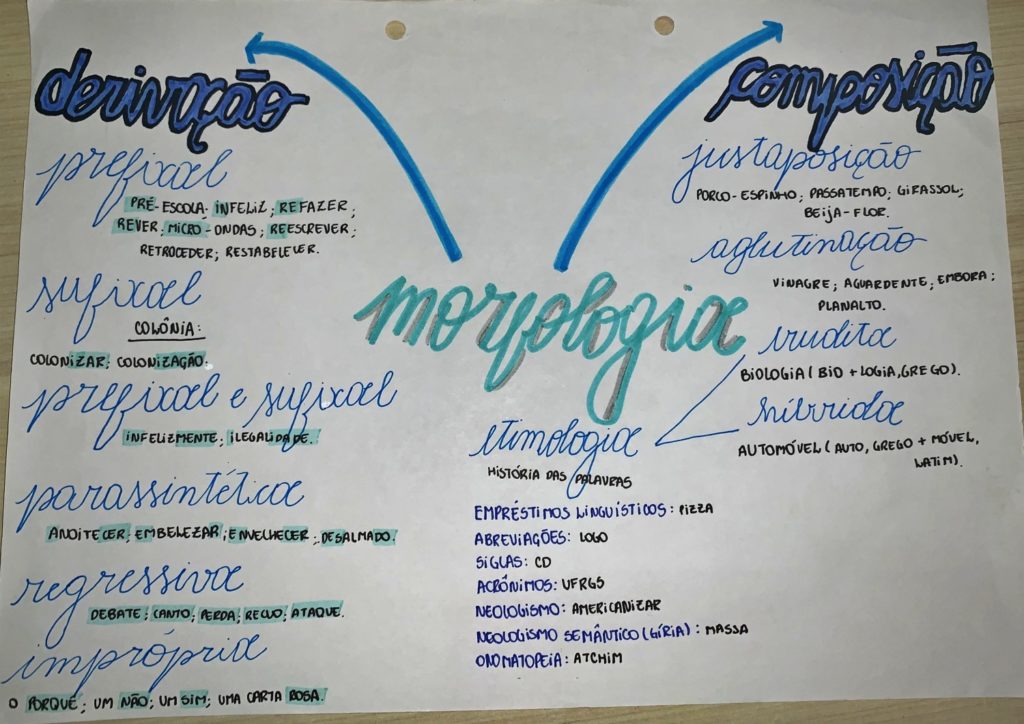 derivação
prefixal
PRÉ-ESCOLA; INFELIZ; REFAZER;
REVER; MICRO-ONDAS; REESCREVER;
RETROCEDER; RESTABELELER.
sufixal
COLÔNIA:
COLONIZAR; COLONIZAÇÃO.
prefixal e sufixal
INFELIZMENTE; ILEGALIDADE.
parassintética
ANOITECER; EMBELEZAR; ENVELHECER; DESALMADO.
regressiva
DEBATE; CANTO; PERDA; RECUO; ATAQUE.
imprópria
O PORQUÊ; UM NÃO; UM SIM; UMA CARTA ROSA.
morfologia
composição
justaposição
PORCO-ESPINHO; PASSATEMPO; GIRASSOL;
BEIJA-FLOR.
aglutinação
VINAGRE; AGUARDENTE; EMBORA;
PLANALTO.
erudita
BIOLOGIA (BIO + LOGIA, GREGO).
híbrida
AUTOMÓVEL (AUTO, GREGO + MÓVEL,
LATIM).
etimologia
HISTÓRIA DAS PALAVRAS
EMPRÉSTIMOS LINGUÍSTICOS: PIZZA
ABREVIAÇÕES: LOGO
SIGLAS: CD
ACRÔNIMOS: UFRGS
NEOLOGISMO: AMERICANIZAR
NEOLOGISMO SEMÂNTICO (GÍRIA): MASSA
ONOMATOPEIA: ATCHIM